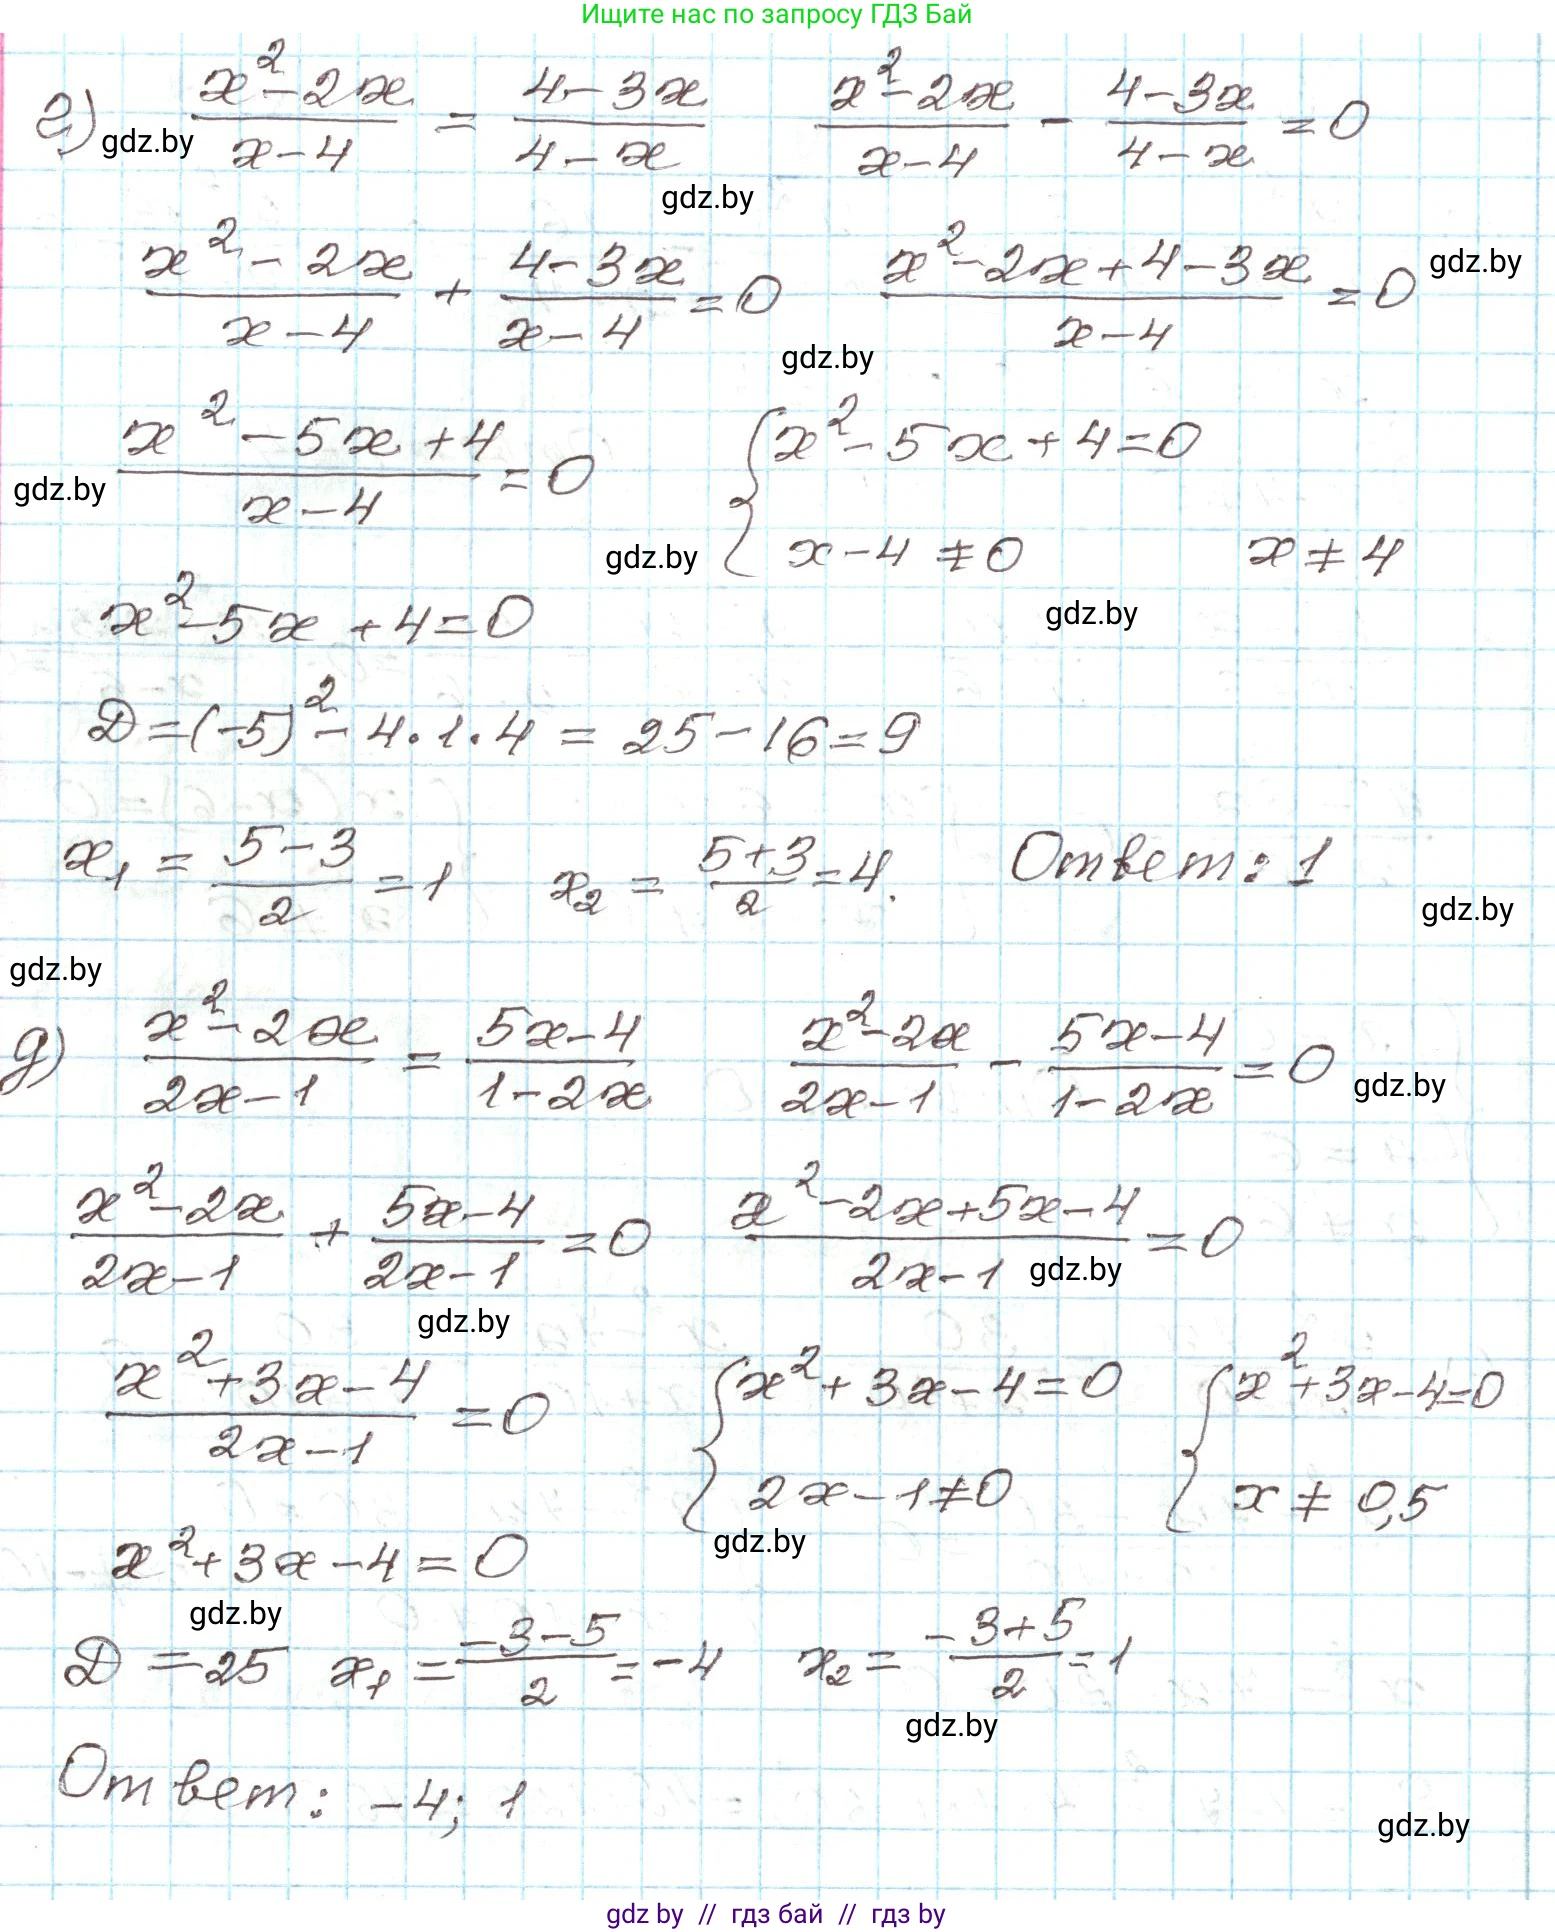 Ищите нас по запросу ГДЗ Бай
г) (x² - 2x)/(x - 4) = (4 - 3x)/(4 - x)   (x² - 2x)/(x - 4) - (4 - 3x)/(4 - x) = 0
gdz.by
gdz.by
(x² - 2x)/(x - 4) + (4 - 3x)/(x - 4) = 0   (x² - 2x + 4 - 3x)/(x - 4) = 0   gdz.by
gdz.by
(x² - 5x + 4)/(x - 4) = 0   { x² - 5x + 4 = 0
gdz.by
gdz.by   x - 4 ≠ 0   x ≠ 4
x² - 5x + 4 = 0   gdz.by
D = (-5)² - 4·1·4 = 25 - 16 = 9
x₁ = (5 - 3)/2 = 1   x₂ = (5 + 3)/2 = 4.   Ответ: 1
gdz.by
gdz.by
д) (x² - 2x)/(2x - 1) = (5x - 4)/(1 - 2x)   (x² - 2x)/(2x - 1) - (5x - 4)/(1 - 2x) = 0   gdz.by
(x² - 2x)/(2x - 1) + (5x - 4)/(2x - 1) = 0   (x² - 2x + 5x - 4)/(2x - 1) = 0
gdz.by
gdz.by
(x² + 3x - 4)/(2x - 1) = 0   { x² + 3x - 4 = 0   { x² + 3x - 4 = 0
2x - 1 ≠ 0   x ≠ 0,5
gdz.by
x² + 3x - 4 = 0
gdz.by
D = 25   x₁ = (-3 - 5)/2 = -4   x₂ = (-3 + 5)/2 = 1
gdz.by
Ответ: -4; 1
gdz.by
gdz by // гдз бай // гдз by